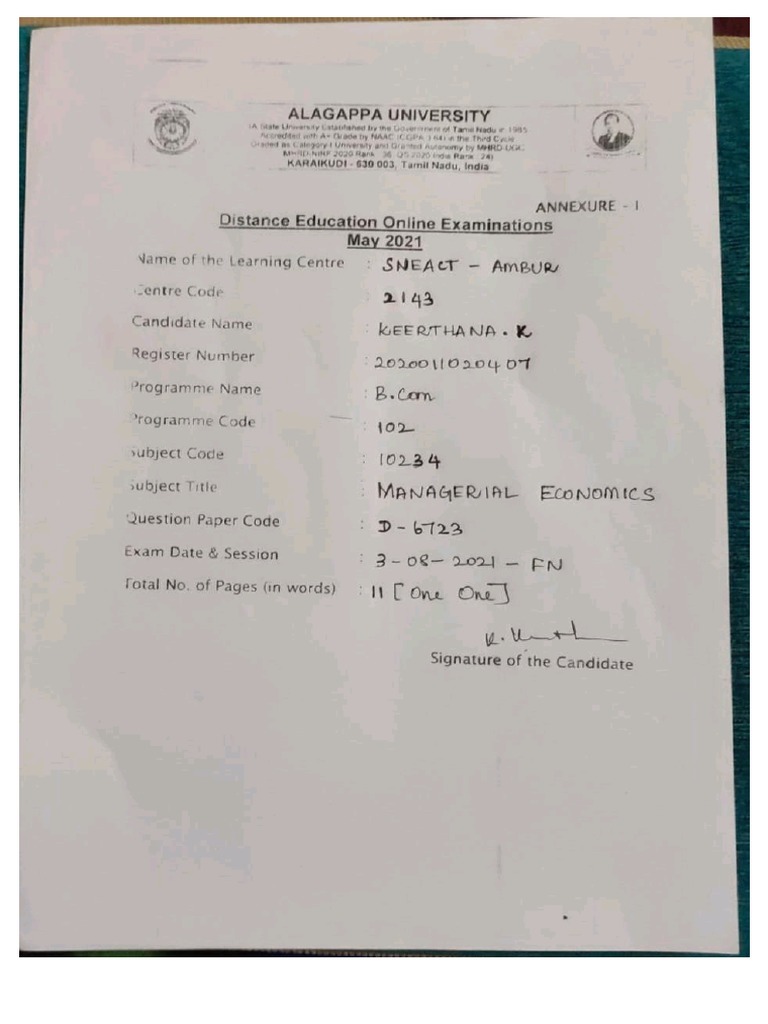 ALAGAPPA UNIVERSITY
(A State University Established by the Government of Tamil Nadu in 1985,
Accredited with A+ Grade by NAAC (CGPA 3.64) in the Third Cycle
Graded as Category-I University and Granted Autonomy by MHRD-UGC,
MHRD-NIRF 2020 Rank : 36, QS 2020 India Rank : 24)
KARAIKUDI - 630 003, Tamil Nadu, India
ANNEXURE - I
Distance Education Online Examinations
May 2021
Name of the Learning Centre : SNEACT - AMBUR
Centre Code : 2143
Candidate Name : KEERTHANA . K
Register Number : 2020011020407
Programme Name : B.Com
Programme Code : 102
Subject Code : 10234
Subject Title : MANAGERIAL ECONOMICS
Question Paper Code : D-6723
Exam Date & Session : 3-08-2021 - FN
Total No. of Pages (in words) : 11 [One One]
Signature of the Candidate